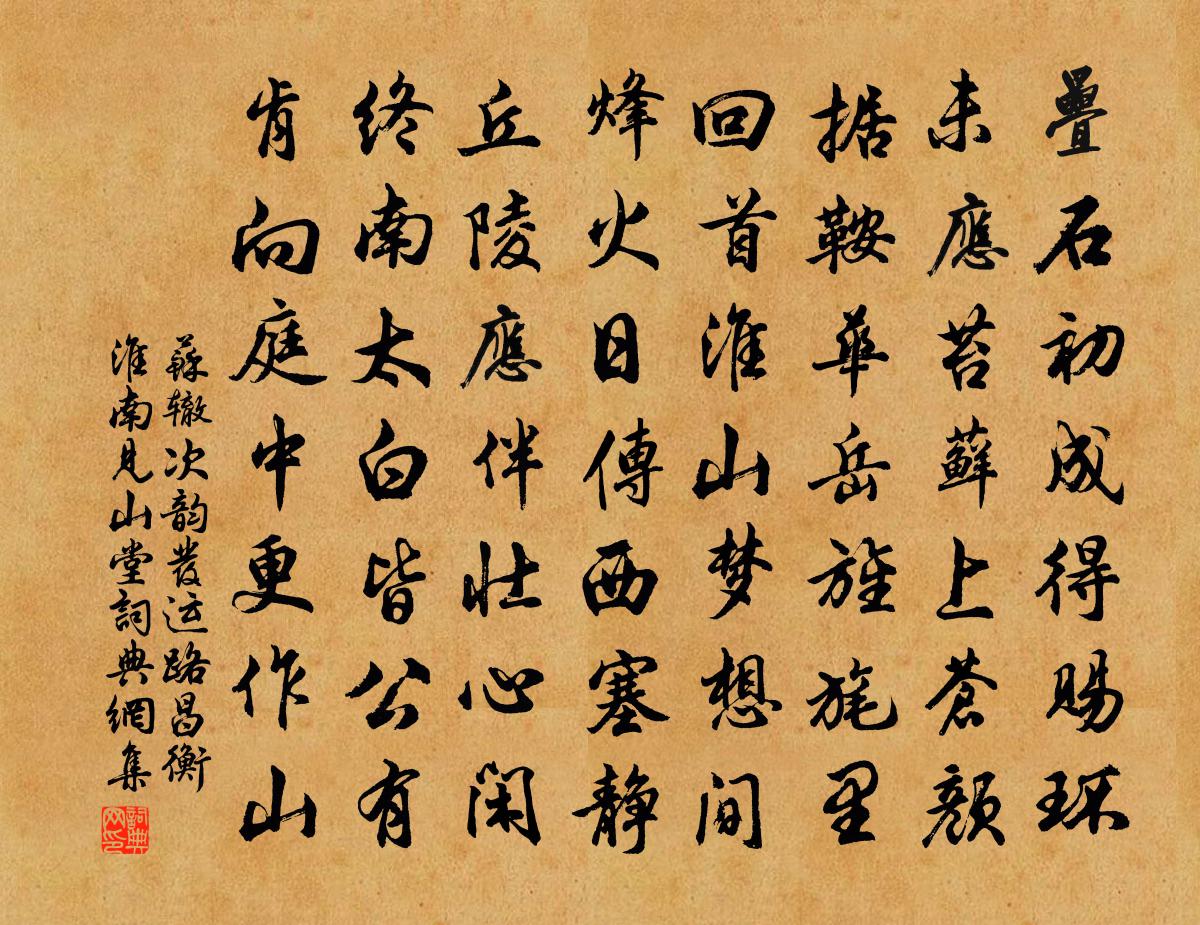 疊石初成得賜環
未應苔蘚上蒼顏
据鞍華岳旌旄里
回首淮山梦想間
烽火日傳西塞静
丘陵應伴壮心闲
終南太白皆公有
肯向庭中更作山
蘇辙次韵發运路昌衡
淮南見山堂詞典網集
詞典网印